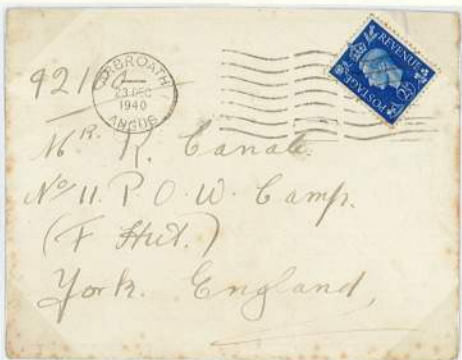 921
ARBROATH
23 DEC
1940
ANGUS
POSTAGE
REVENUE
2½D
Mr. R. Canale.
No 11. P.O.W. Camp.
(F Hut.)
York. England,